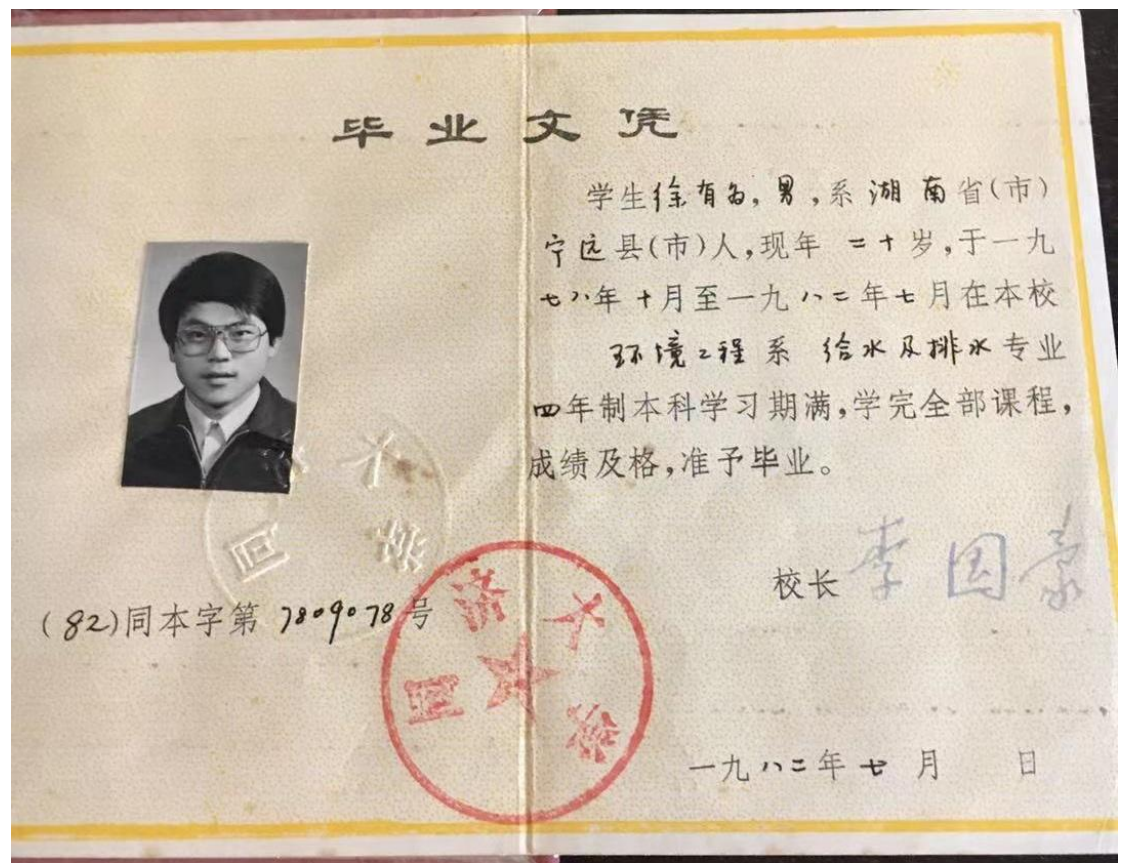 毕业文凭
学生徐有为,男,系湖南省(市)
宁远县(市)人,现年 二十岁,于一九
七八年十月至一九八二年七月在本校
环境工程系 给水及排水专业
四年制本科学习期满,学完全部课程,
成绩及格,准予毕业。
校长 李国豪
(82)同本字第 7809078号
同济大学
同济大学
一九八二年七月 日